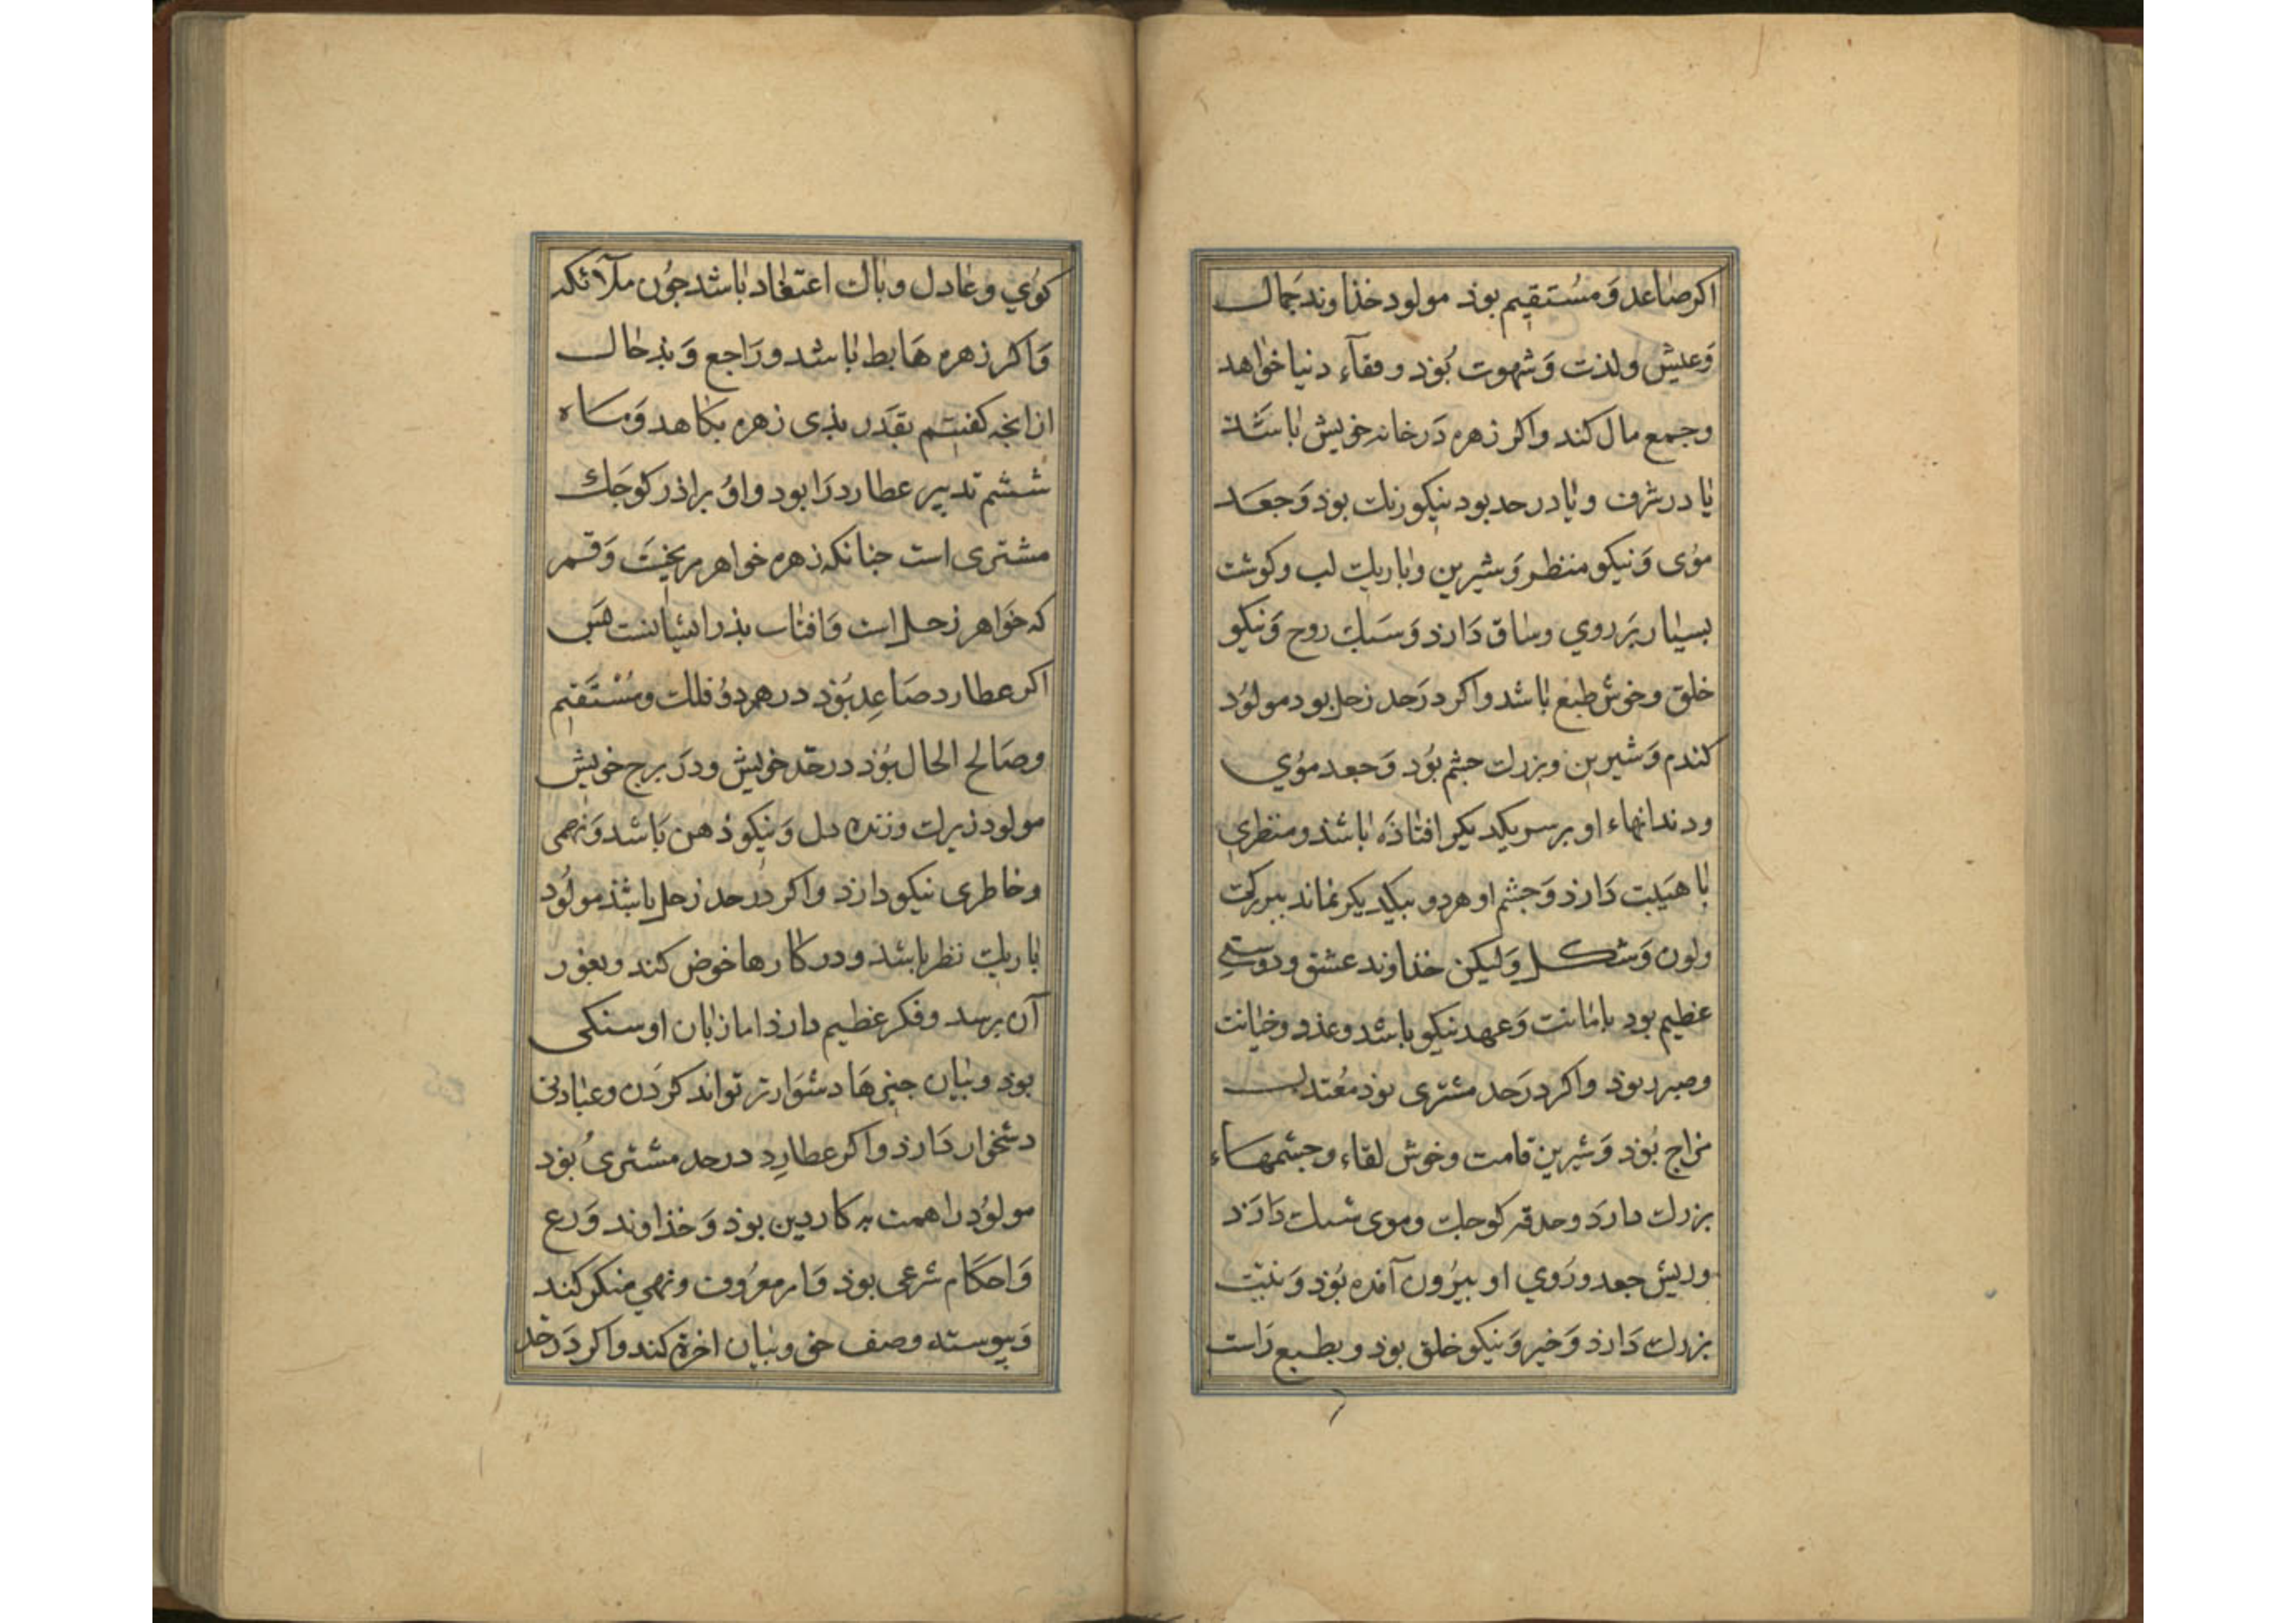 اكر صاعد وَ مُستقيم بوذ مولود خذاوند جَمال
وَعيش ولذت وَشهوت بُوَذ و فقآءِ دنيا خواهد
وجمع مال كند واكر زهره دَرخانه خويش باشَد
يا در شرف ويا در حد بود نيكو رنك بوذ وَجعَد
مُوى وَنيكو منظر وَشيرين وباريك لب وكوشت
بسيار بَر روي وساق دَارذ وَسَبك روح وَنيكو
خلق وخوش طبع باشد واكر درَحد زحل بود مولُود
كندم وَشيرين وبزرك جشم بُوَد وَجعد مُوي
ودندانهاء او بر سر يكديكر افتاذَه باشذ ومنظرى
با هَيبت دَارذ وَجشم او هردو بيكديكر نماند ببزركى
ولون وَشكل وَليكن خذاوند عشق ودوستى
عظيم بود بامانت وَعهد نيكو باشد وعذر وخيانت
وصبر بوذ واكر درَحد مشترى بوذ مُعتدل
مزاج بُوَذ وَشيرين قامت وخوش لقاء وجشمهاء
بزرك دارَد وحدقه كوجك وموى سبك دَارَذ
وريش جعد ورُوي او بيرُون آمذه بُوَذ وَنيّت
بزرك دَارذ وَخير وَنيكو خلق بوذ وبطبع رَاست
كوُي وعادل وباك اعتقاد باشد جوُن ملآئكه
وَاكر زهره هَابط باشد ورَاجع وَبذحال
ازانجه كفتيم بقدَر بذى زهره بكاهد وَماه
ششم تدبير عطارد رَا بود واوُ براذر كوجَك
مشترى است جنانكه زهره خواهر مريخست وَقمر
كه خَواهر زحل است وَافتاب بذر ايشانست هَس
اكر عطارد صَاعِد بوَذ در هردوُ فلك ومُسْتَقيم
وصَالح الحال بُوَذ در حَد خويش ودرَ برج خويش
مولود زيرك وزنده دل وَنيكو ذهن بَاشد وَفهمى
وخاطرى نيكو دارذ واكر در حد زحل باشذ مولُود
باريك نظر باشذ ودر كارها خوض كند وبغور
آن برسد وفكر عظيم دارذ اما زبان او سنكى
بوذ وبيان جيزهَا دشوَارتر تواند كردَن وعبادتى
دشخوار دَارذ واكر عطارِد درحد مشترى بُوَد
مولوُد را همت به كار دين بوذ وَخذاوند وَرع
وَاحكَام شرعى بوذ وَامر معرُوف ونهي منكر كند
وَپيوسته وصف حق وبيان اخرة كند واكر دَرحَد